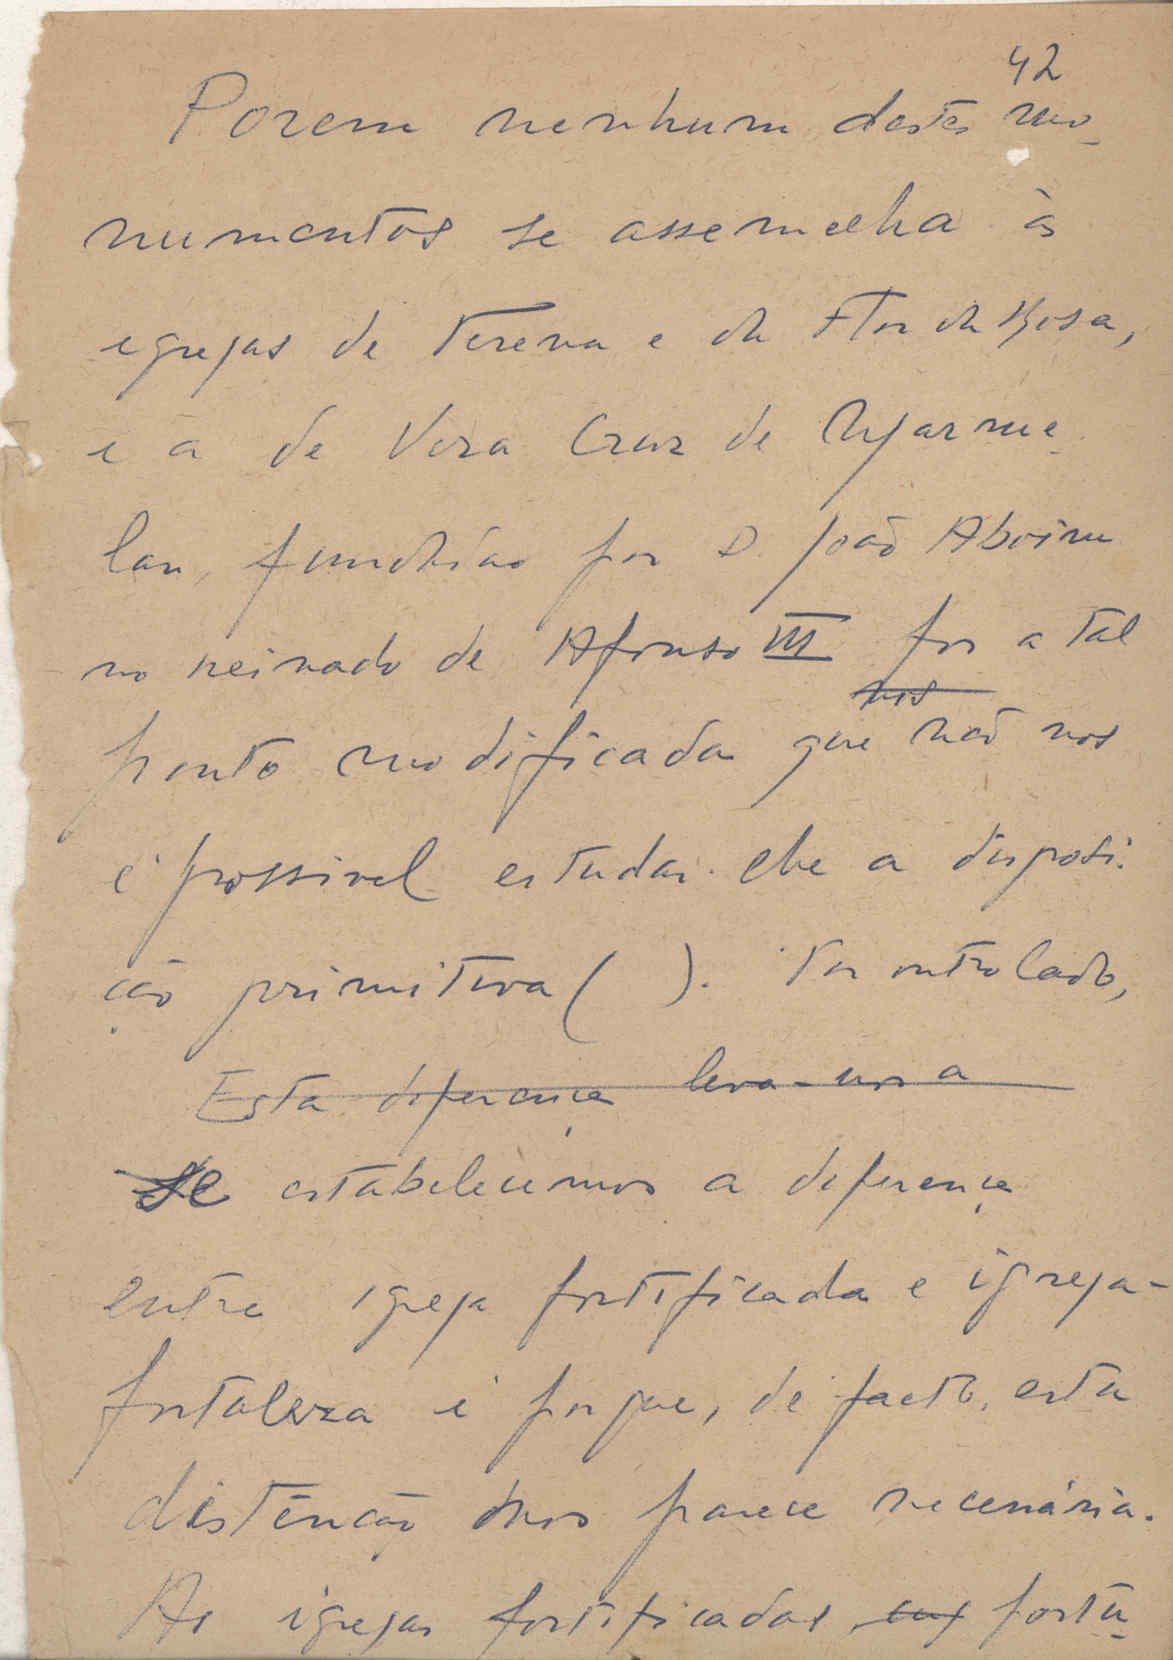 42
Porem nenhum destes mo-
numentos se assemelha às
egrejas de Terena e da Flor da Rosa,
e a de Vera Cruz de Marme-
lar, fundada por D. João Aboim
no reinado de Afonso III foi a tal
nos
ponto modificada que não nos
é possivel estudar-lhe a disposi-
ção primitiva ( ). Por outro lado,
Esta diferença leva-nos a
Se estabelecemos a diferença
entre igreja fortificada e igreja-
fortaleza é porque, de facto, esta
distinção nos parece necessária.
As igrejas fortificadas fortu-